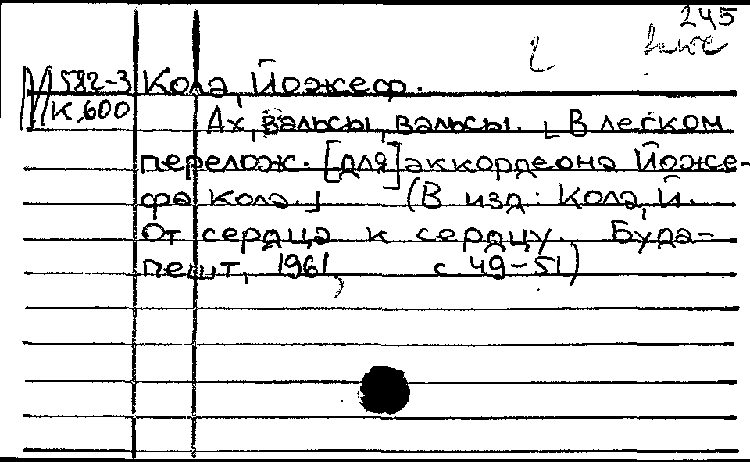 245
М 582-3 Кола, Йожеф.
К 600 Ах, вальсы, вальсы. [В легком
перелож. [для] аккордеона Йоже-
фа Кола.] (В изд: Кола, Й.
От сердца к сердцу. Буда-
пешт, 1961, с 49-51)